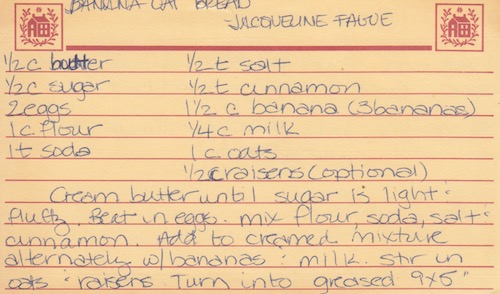 BANANA OAT BREAD
JACQUELINE FAGUE
1/2 c butter 1/2 t salt
1/2 c sugar 1/2 t cinnamon
2 eggs 1 1/2 c banana (3 bananas)
1 c flour 1/4 c milk
1 t soda 1 c oats
1/2 c raisens (optional)
Cream butter until sugar is light &
fluffy. Beat in eggs. mix flour, soda, salt &
cinnamon. Add to creamed mixture
alternately w/ bananas & milk. stir in
oats & raisens. Turn into greased 9x5"